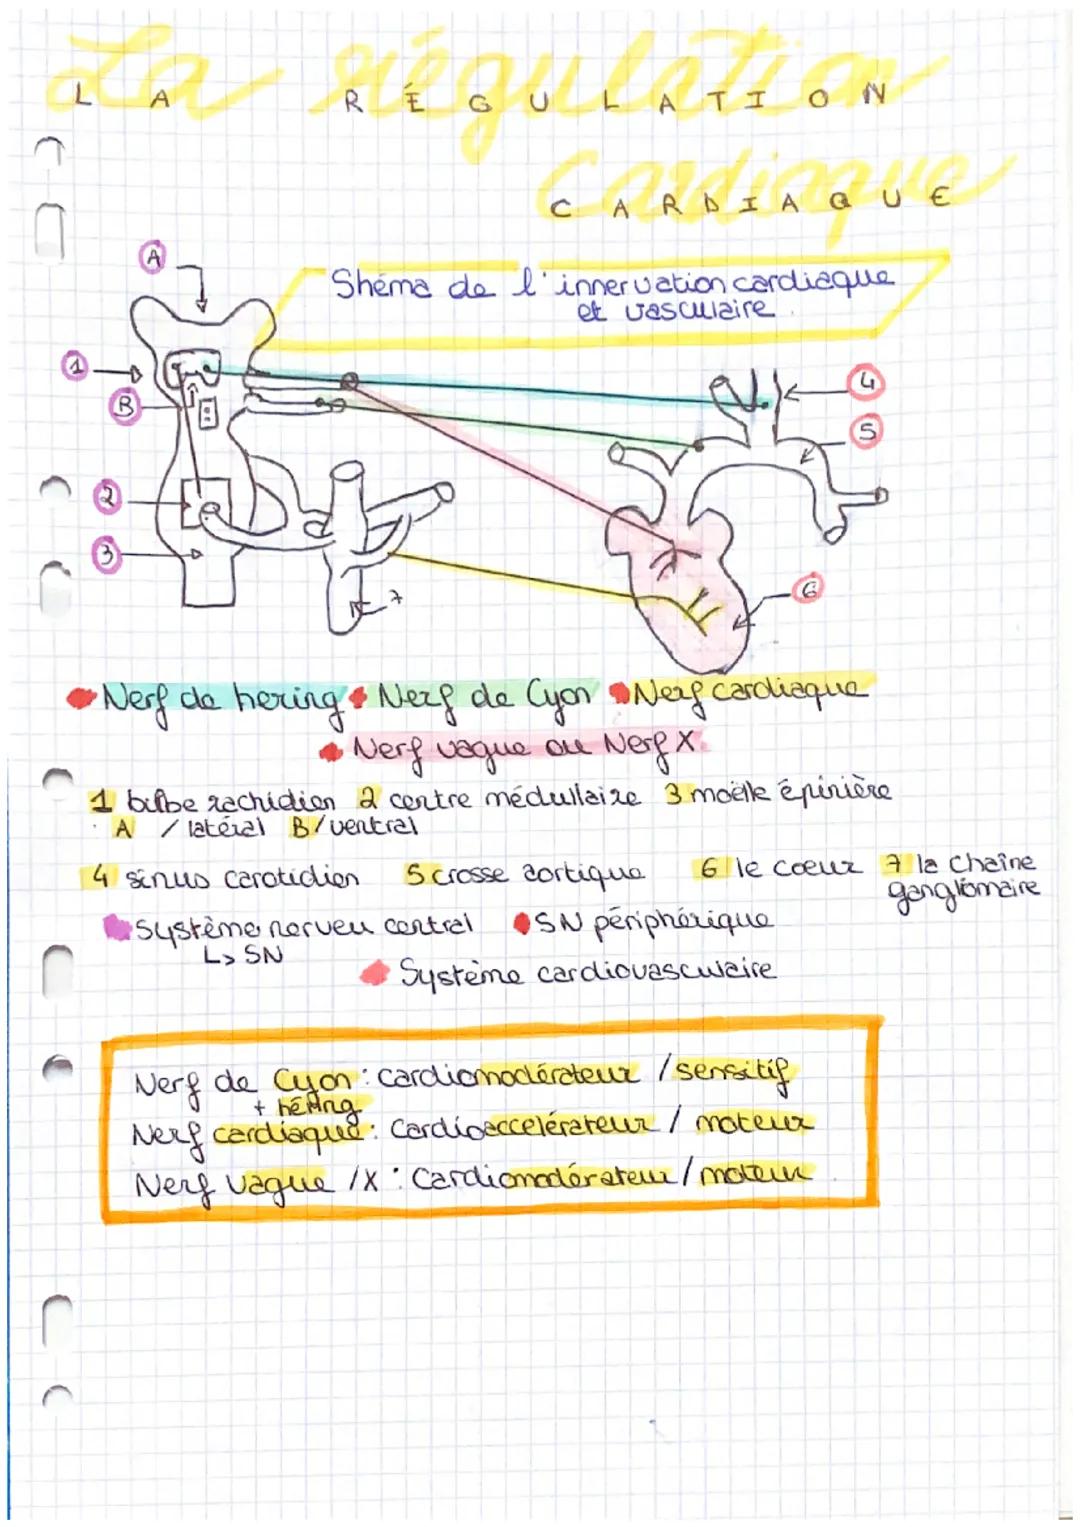 La régulation
LA RÉGULATION
cardiaque
CARDIAQUE
A
Shéma de l'innervation cardiaque
et vasculaire.
1
4
B
5
2
3
7
6
Nerf de hering Nerf de Cyon Nerf cardiaque
Nerf vague ou Nerf X.
1 bulbe rachidien 2 centre médullaire 3 moëlle épinière
A / latéral B/ventral
4 sinus carotidien 5 crosse aortique 6 le coeur 7 la chaîne
ganglomaire
Système nerveu central SN périphérique
L> SN
Système cardiovasculaire
Nerf de Cyon : cardiomodérateur / sensitif
+ héring
Nerf cardiaque : Cardioaccelérateur / moteur
Nerf vague /X : Cardiomodérateur / moteur